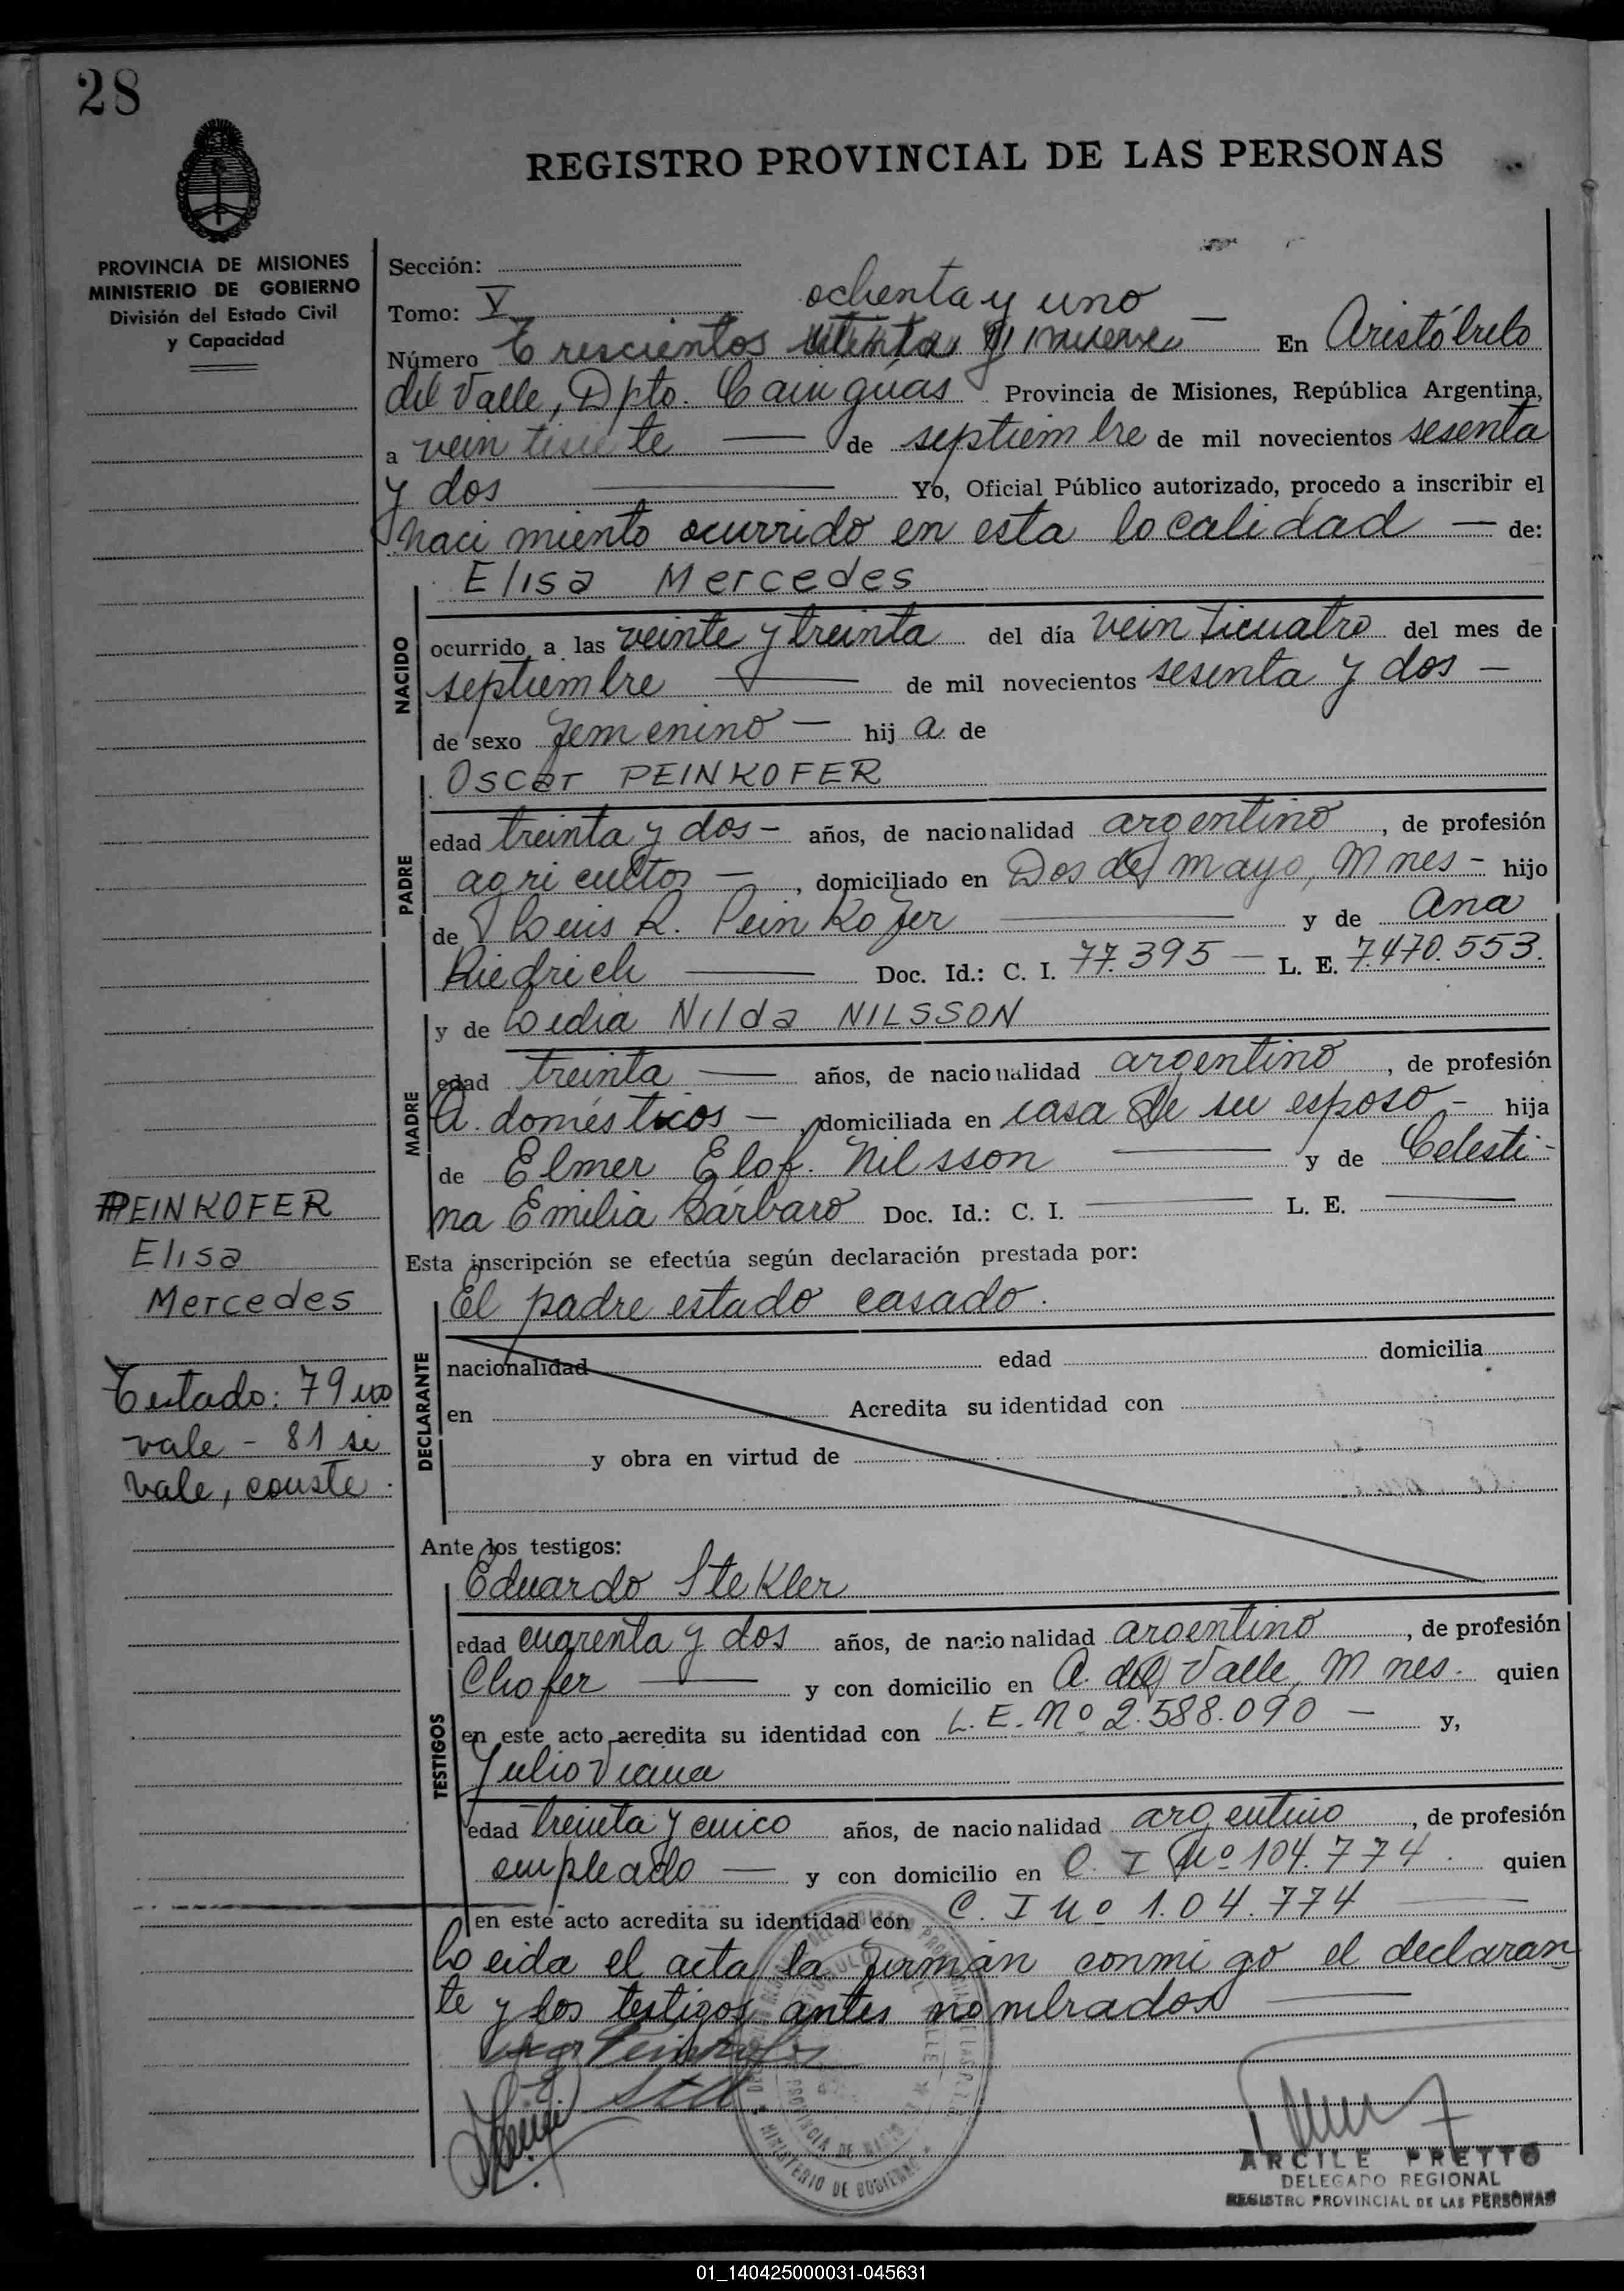 28
REGISTRO PROVINCIAL DE LAS PERSONAS
PROVINCIA DE MISIONES
MINISTERIO DE GOBIERNO
División del Estado Civil
y Capacidad
Sección:
Tomo: V
ochenta y uno
Número Trescientos setenta y nueve — En Aristóbulo
del Valle, Dpto. Cainguas Provincia de Misiones, República Argentina,
a veintisiete — de septiembre de mil novecientos sesenta
y dos — Yo, Oficial Público autorizado, procedo a inscribir el
nacimiento ocurrido en esta localidad — de:
Elisa Mercedes
NACIDO
ocurrido a las veinte y treinta del día veinticuatro del mes de
septiembre — de mil novecientos sesenta y dos —
de sexo femenino — hij a de
Oscar PEINKOFER
PADRE
edad treinta y dos - años, de nacionalidad argentino, de profesión
agricultor —, domiciliado en Dos de mayo, Mnes - hijo
de Luis R. Peinkofer — y de Ana
Riedrich — Doc. Id.: C. I. 77.395 — L. E. 7.470.553.
y de Lidia Nilda NILSSON
MADRE
edad treinta — años, de nacionalidad argentino, de profesión
Q. domésticos —, domiciliada en casa de su esposo - hija
de Elmer Elof. Nilsson — y de Celesti-
na Emilia Bárbaro Doc. Id.: C. I. — L. E. —
Esta inscripción se efectúa según declaración prestada por:
El padre estado casado.
DECLARANTE
nacionalidad edad domicilia
en Acredita su identidad con
y obra en virtud de
PEINKOFER
Elisa
Mercedes
Testado: 79 no
vale - 81 si
vale, conste.
Ante los testigos:
TESTIGOS
Eduardo Stekler
edad cuarenta y dos años, de nacionalidad argentino, de profesión
Chofer — y con domicilio en A. del Valle, Mnes. quien
en este acto acredita su identidad con L. E. Nº 2.588.090 — y,
Julio Viana
edad treinta y cinco años, de nacionalidad argentino, de profesión
empleado — y con domicilio en C. I Nº 104.774. quien
en este acto acredita su identidad con C. I Nº 1.04.774 —
Leida el acta la firman conmigo el declaran
te y los testigos antes nombrados —
MINISTERIO DE GOBIERNO
ARCILE PRETTO
DELEGADO REGIONAL
REGISTRO PROVINCIAL DE LAS PERSONAS
01_140425000031-045631